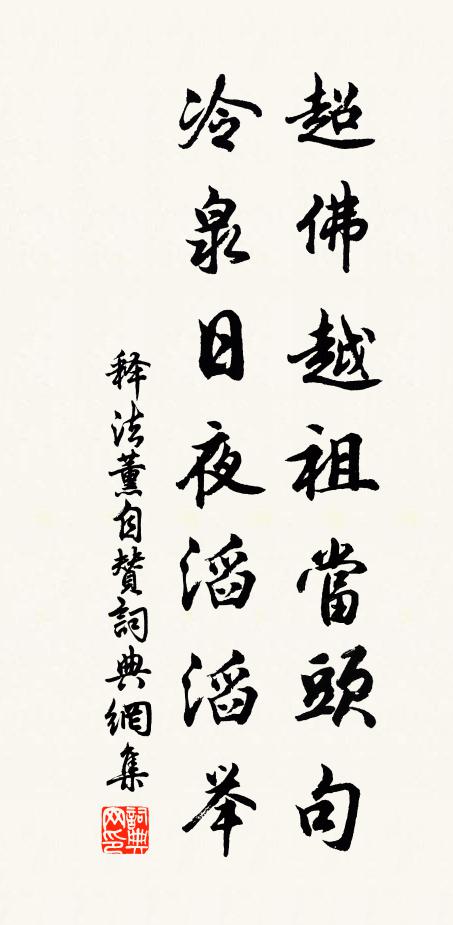 超佛越祖當頭句
冷泉日夜滔滔举
释法薰自赞詞典網集
詞典网印